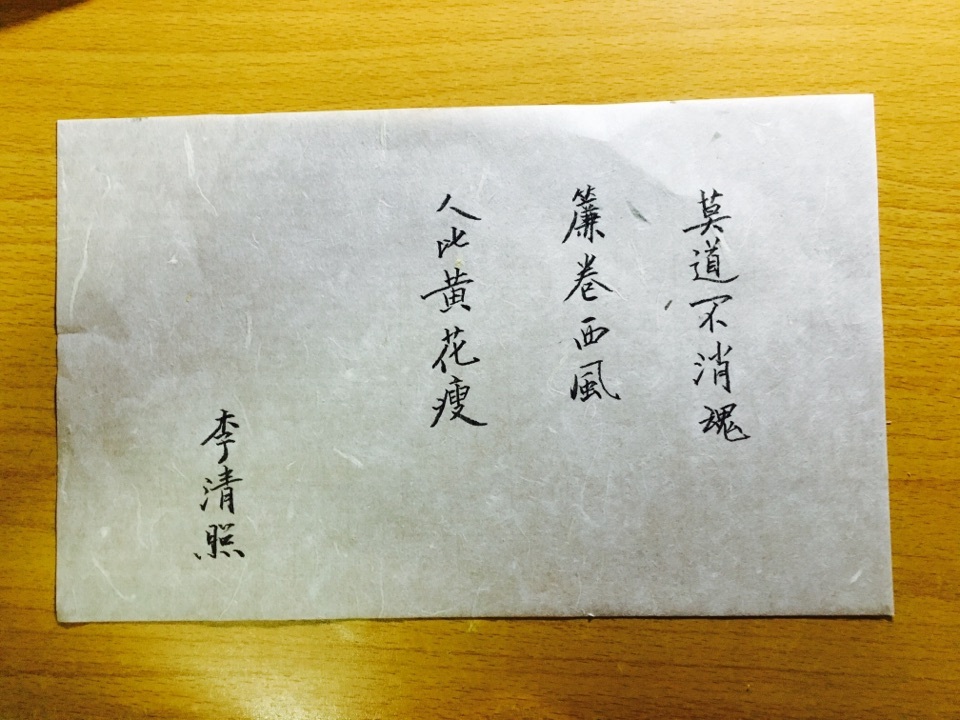 莫道不消魂
簾卷西風
人比黄花瘦
李清照